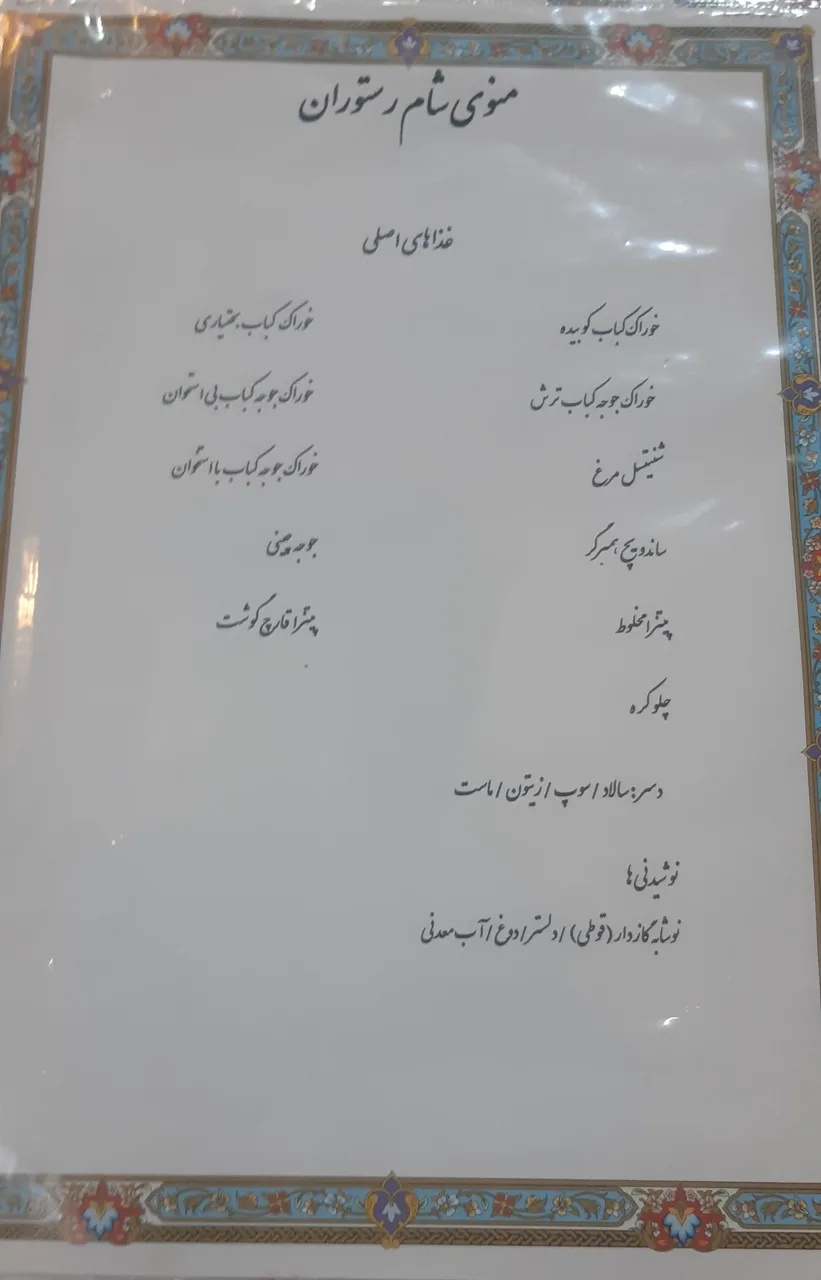 منوی شام رستوران
غذاهای اصلی
خوراک کباب کوبیده
خوراک کباب بختیاری
خوراک جوجه کباب ترش
خوراک جوجه کباب بی استخوان
شنیتسل مرغ
خوراک جوجه کباب با استخوان
ساندویچ همبرگر
جوجه چینی
پیتزا مخلوط
پیتزا قارچ گوشت
چلو کره
دسر: سالاد / سوپ / زیتون / ماست
نوشیدنی ها
نوشابه گازدار (قوطی) / دلستر / دوغ / آب معدنی